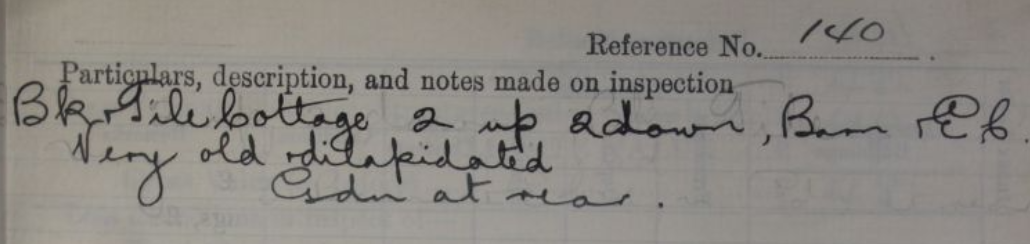 Reference No. 140.
Particulars, description, and notes made on inspection
Bk & Tile Cottage 2 up 2 down, Barn & E C.
Very old & dilapidated
Gdn at rear.